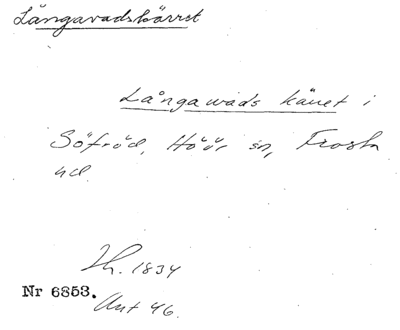 Långavadskärret
Långawads käret i
Söfröd, Höör sn, Frosta
hd.
Lh. 1834
Nr 6353.
Ant 46.